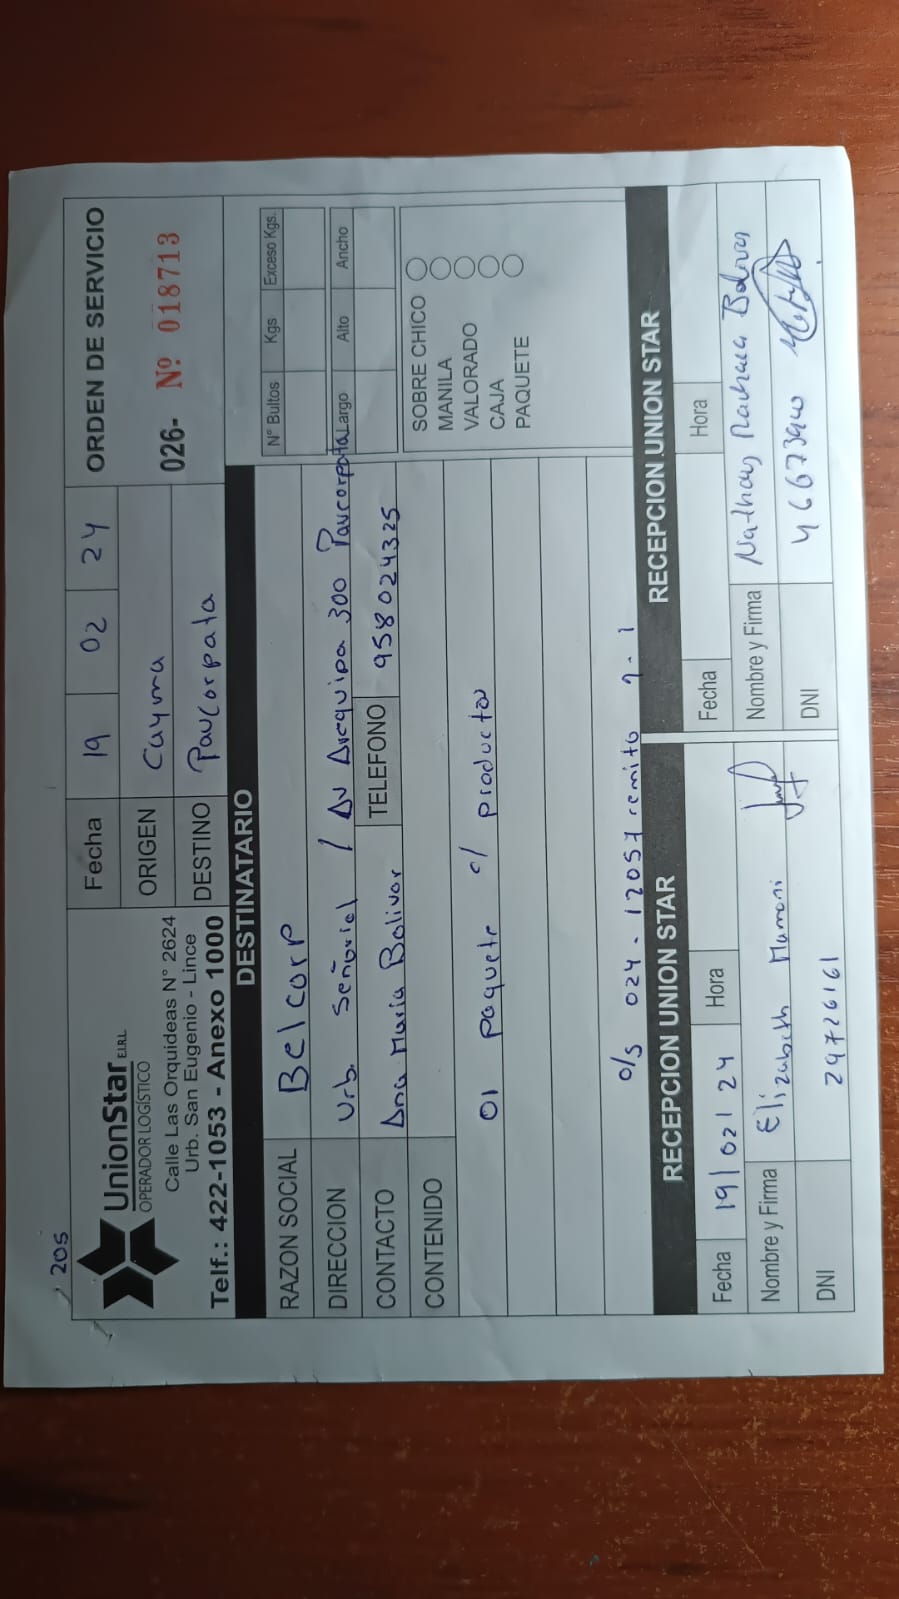 205
UnionStar E.I.R.L
OPERADOR LOGÍSTICO
Calle Las Orquideas N° 2624
Urb. San Eugenio - Lince
Telf.: 422-1053 - Anexo 1000
Fecha 19 02 24
ORIGEN Cayma
DESTINO Paucorpata
ORDEN DE SERVICIO
026- Nº 018713
DESTINATARIO
RAZON SOCIAL Belcorp
DIRECCION Urb. Señorial / Av Arequipa 300 Paucorpata
CONTACTO Ana Maria Bolivar TELEFONO 958024325
CONTENIDO
01 paquete c/ productos
o/s 024-12057 remito
N° Bultos Kgs Exceso Kgs.
Largo Alto Ancho
SOBRE CHICO
MANILA
VALORADO
CAJA
PAQUETE
RECEPCION UNION STAR
Fecha 19/02/24 Hora
Nombre y Firma Elizabeth Mamani
DNI 29726161
RECEPCION UNION STAR
Fecha Hora
Nombre y Firma Nathaly
DNI